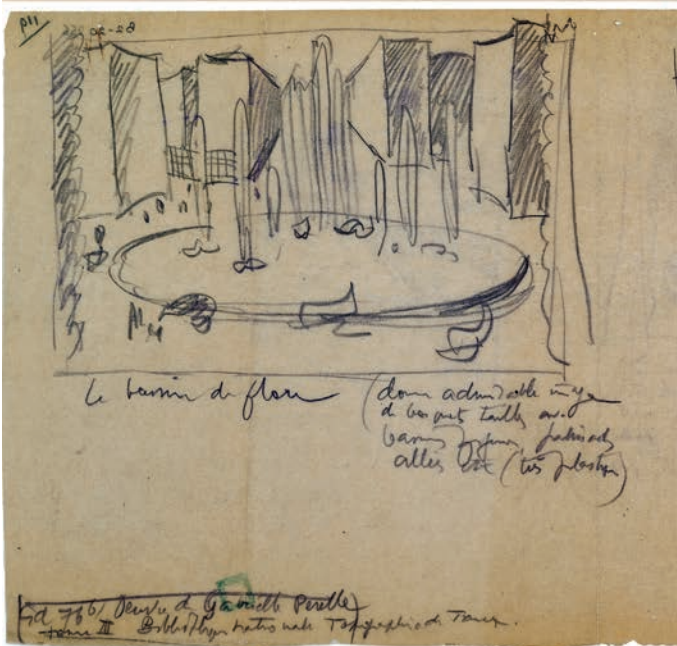 p11
Le bassin de flore
(donne admirable image
de bosquets taillés av.
bassins
allées etc (très plastique)
Gd 76b/ Oeuvre de Gabrielle Perelle)
tome III Bibliothèque nationale Topographie de France.